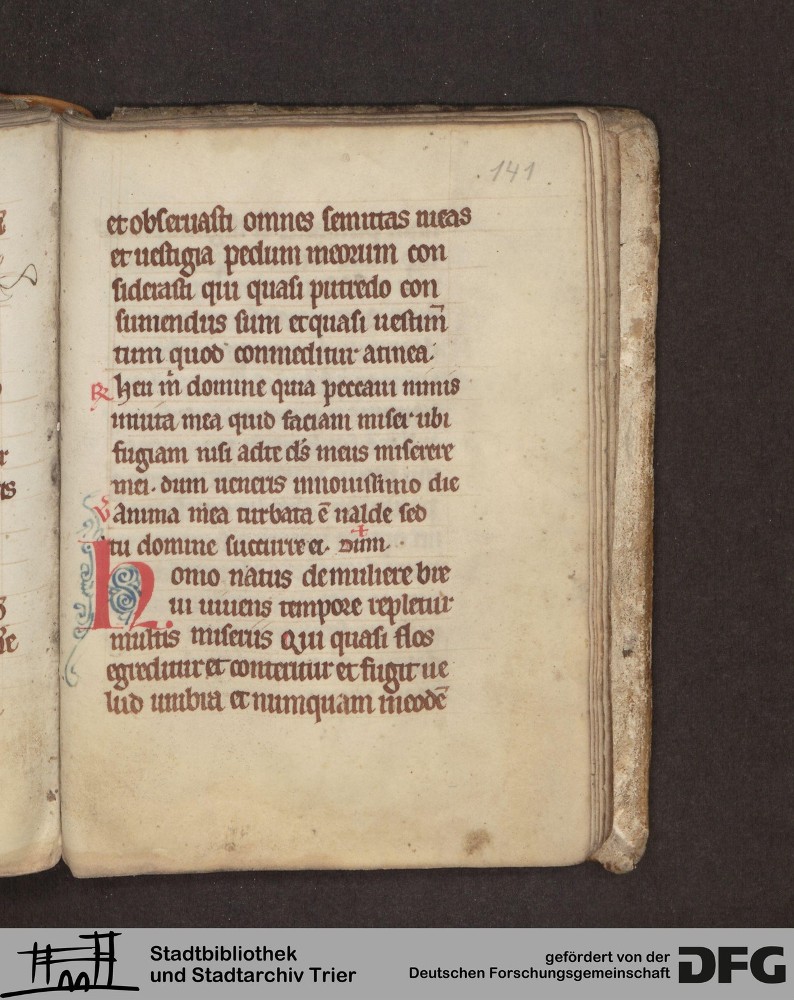 141
et obseruasti omnes semittas meas
et uestigia pedum meorum con
siderasti qui quasi putredo con
sumendus sum et quasi uestim̄
tum quod conmeditur a tinea.
R heu m̄ domine quia peccaui nimis
in uita mea quid faciam miser ubi
fugiam nisi ad te ds̄ meus miserere
mei. dum ueneris in nouissimo die
V Anima mea turbata ē ualde sed
tu domine succurre ei. Dum.
Homo natus de muliere bre
ui uiuens tempore repletur
multis miseriis Qui quasi flos
egreditur et conteritur et fugit ue
lud umbra et numquam in eodē
Stadtbibliothek
und Stadtarchiv Trier
gefördert von der
Deutschen Forschungsgemeinschaft
DFG